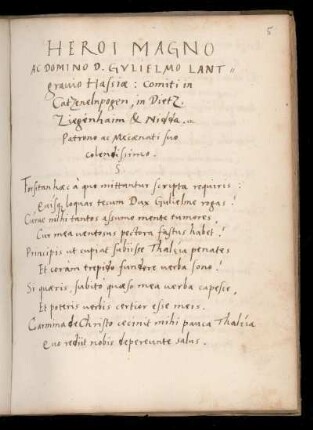 5
HEROI MAGNO
AC DOMINO D. GVLIELMO LANT
gravio Hassiæ: Comiti in
Catzenelnpogen, in Dietz.
Ziegenhaim & Nidda.
Patrono ac Mecœnati suo
colendissimo.
S
Forsitan hæc à quo mittantur scripta requiris:
loquar tecum Dux Gulielme rogas?
mihi tantos assumo mente tumores,
Cur mea ventosus pectora fastus habet?
Principis ut cupiat subiisse Thalia penates
Et coram trepido fundere verba sono?
Si quæris, subito quæso mea verba capesce,
Et poteris verbis certior esse meis.
Carmina de Christo cecinit mihi pauca Thalia
quo rediit nobis depereunte salus.